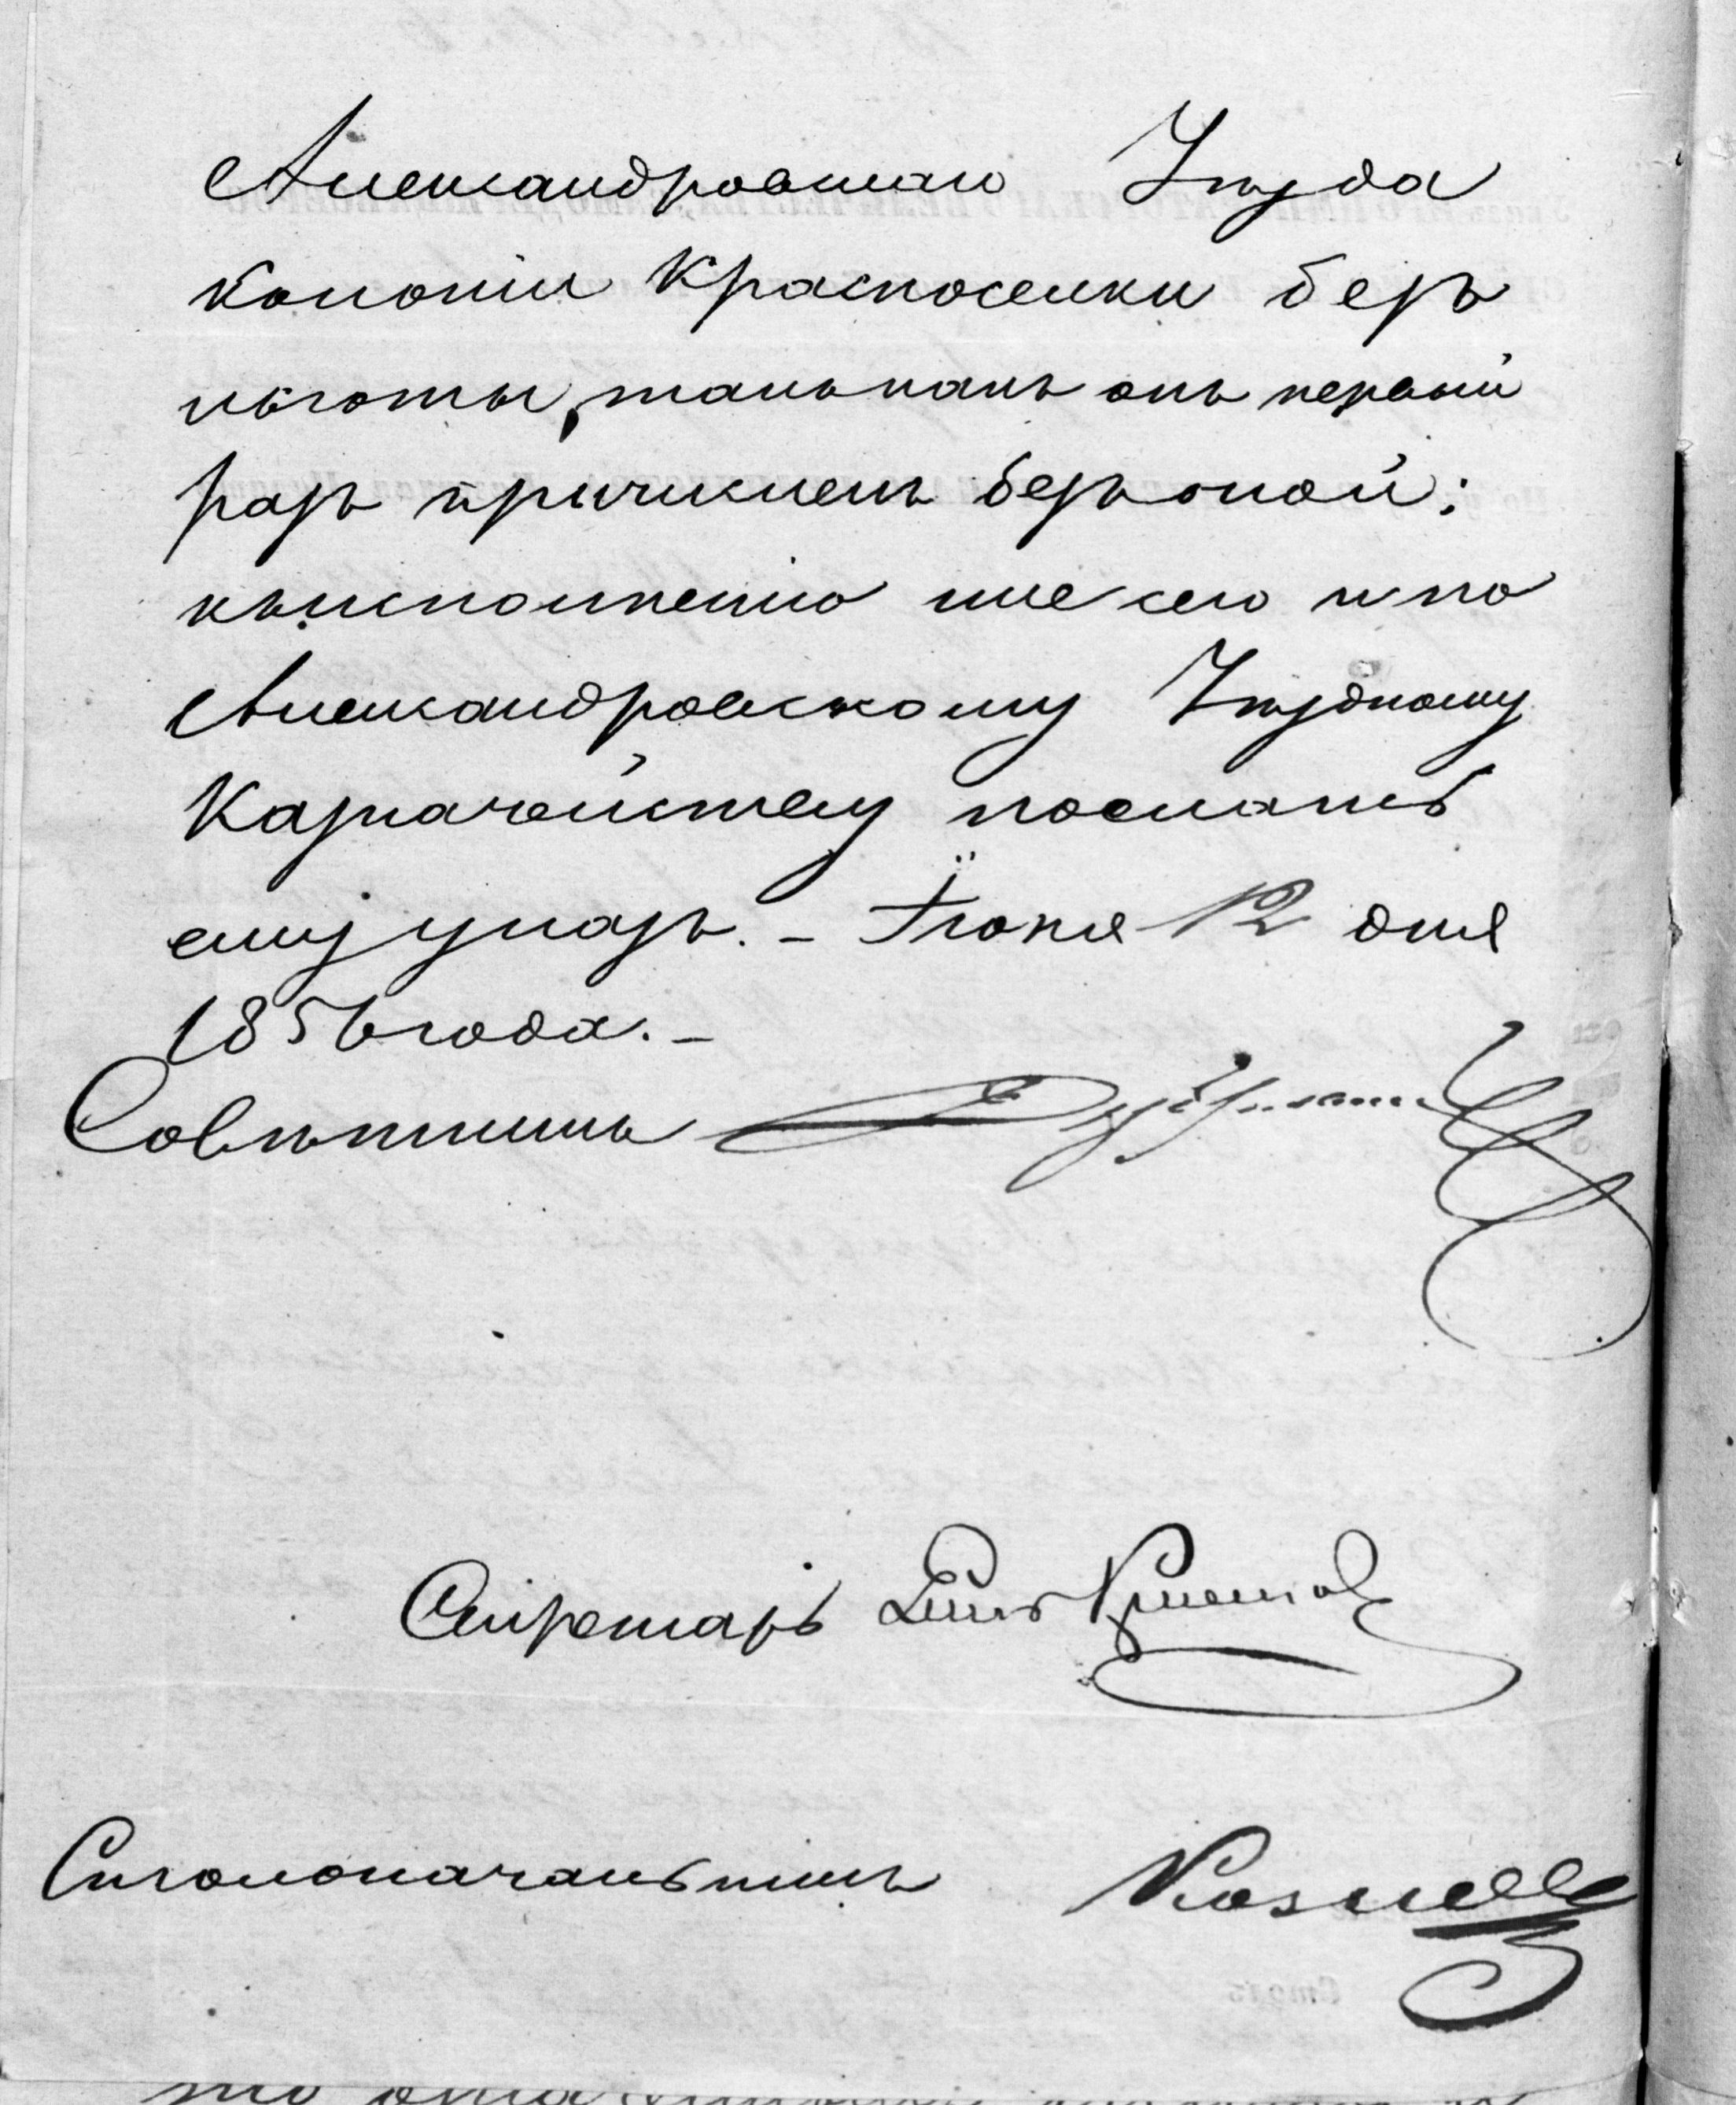 Александровскаго Уѣзда
колоніи Красноселки безъ
льготы, такъ какъ онъ первый
разъ причисленъ безъ оной;
къ исполненію чего и по
Александровскому Уѣздному
Казначейству послать
ему указъ. – Іюня 12 дня
1856 года. –
Совѣтникъ
Секретарь
Столоначальникъ